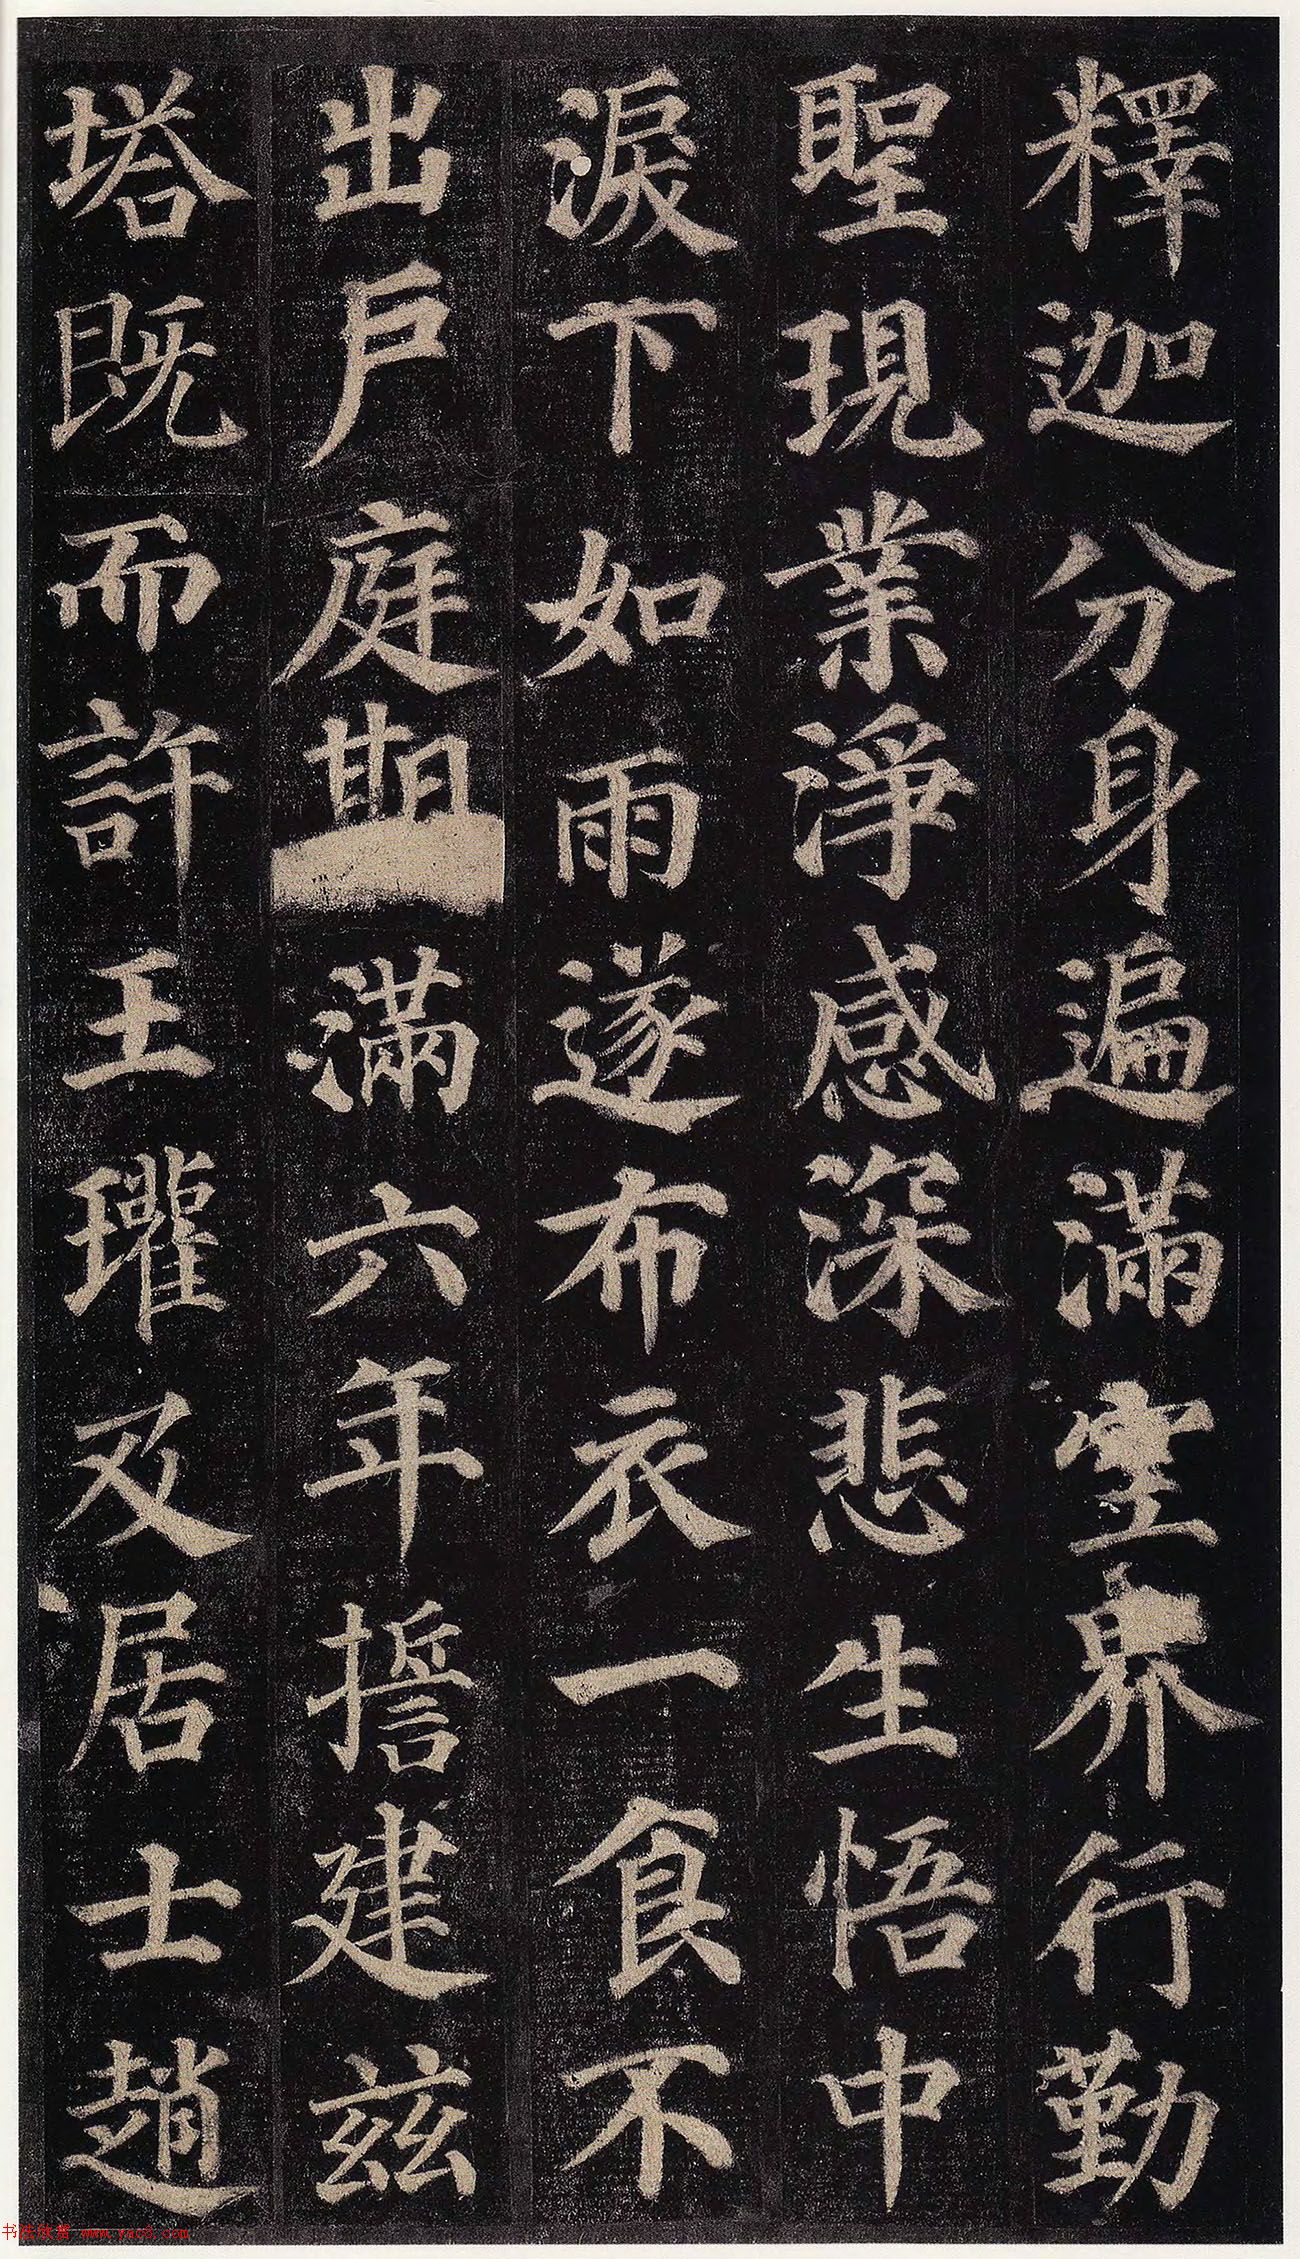 釋迦分身遍滿空界行勤
聖現業淨感深悲生悟中
淚下如雨遂布衣一食不
出戶庭期滿六年誓建茲
塔既而許王瓘及居士趙
书法欣赏 www.yac8.com